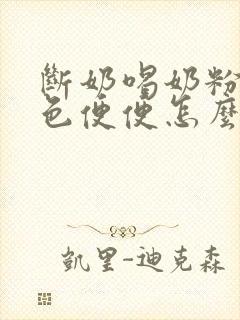 斷奶喝奶粉
色便便怎麼
凱里-迪克森